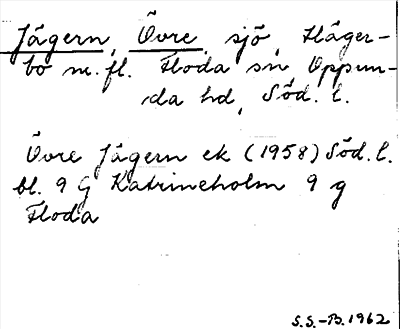 Jägern, Övre, sjö, Häger-
bo m.fl. Floda sn Oppun-
da hd, Söd. l.
Övre Jägern ek (1958) Söd. l.
bl. 9 G Katrineholm 9 g
Floda
S.S.-B. 1962